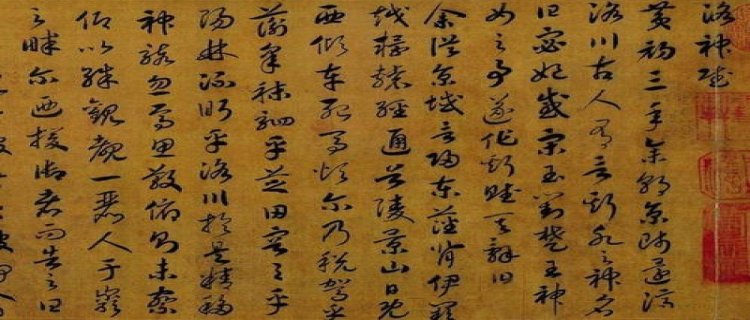 洛神賦
黃初三年余朝京師還濟
洛川古人有言斯水之神名
曰宓妃感宋玉對楚王神
女之事遂作斯賦其辭曰
余從京域言歸東藩背伊闕
越轘轅經通谷陵景山日既
西傾車殆馬煩爾乃稅駕乎
蘅皋秣駟乎芝田容與乎
陽林流眄乎洛川於是精移
神駭忽焉思散俯則未察
仰以殊觀覩一麗人于巖
之畔爾迺援御者而告之曰